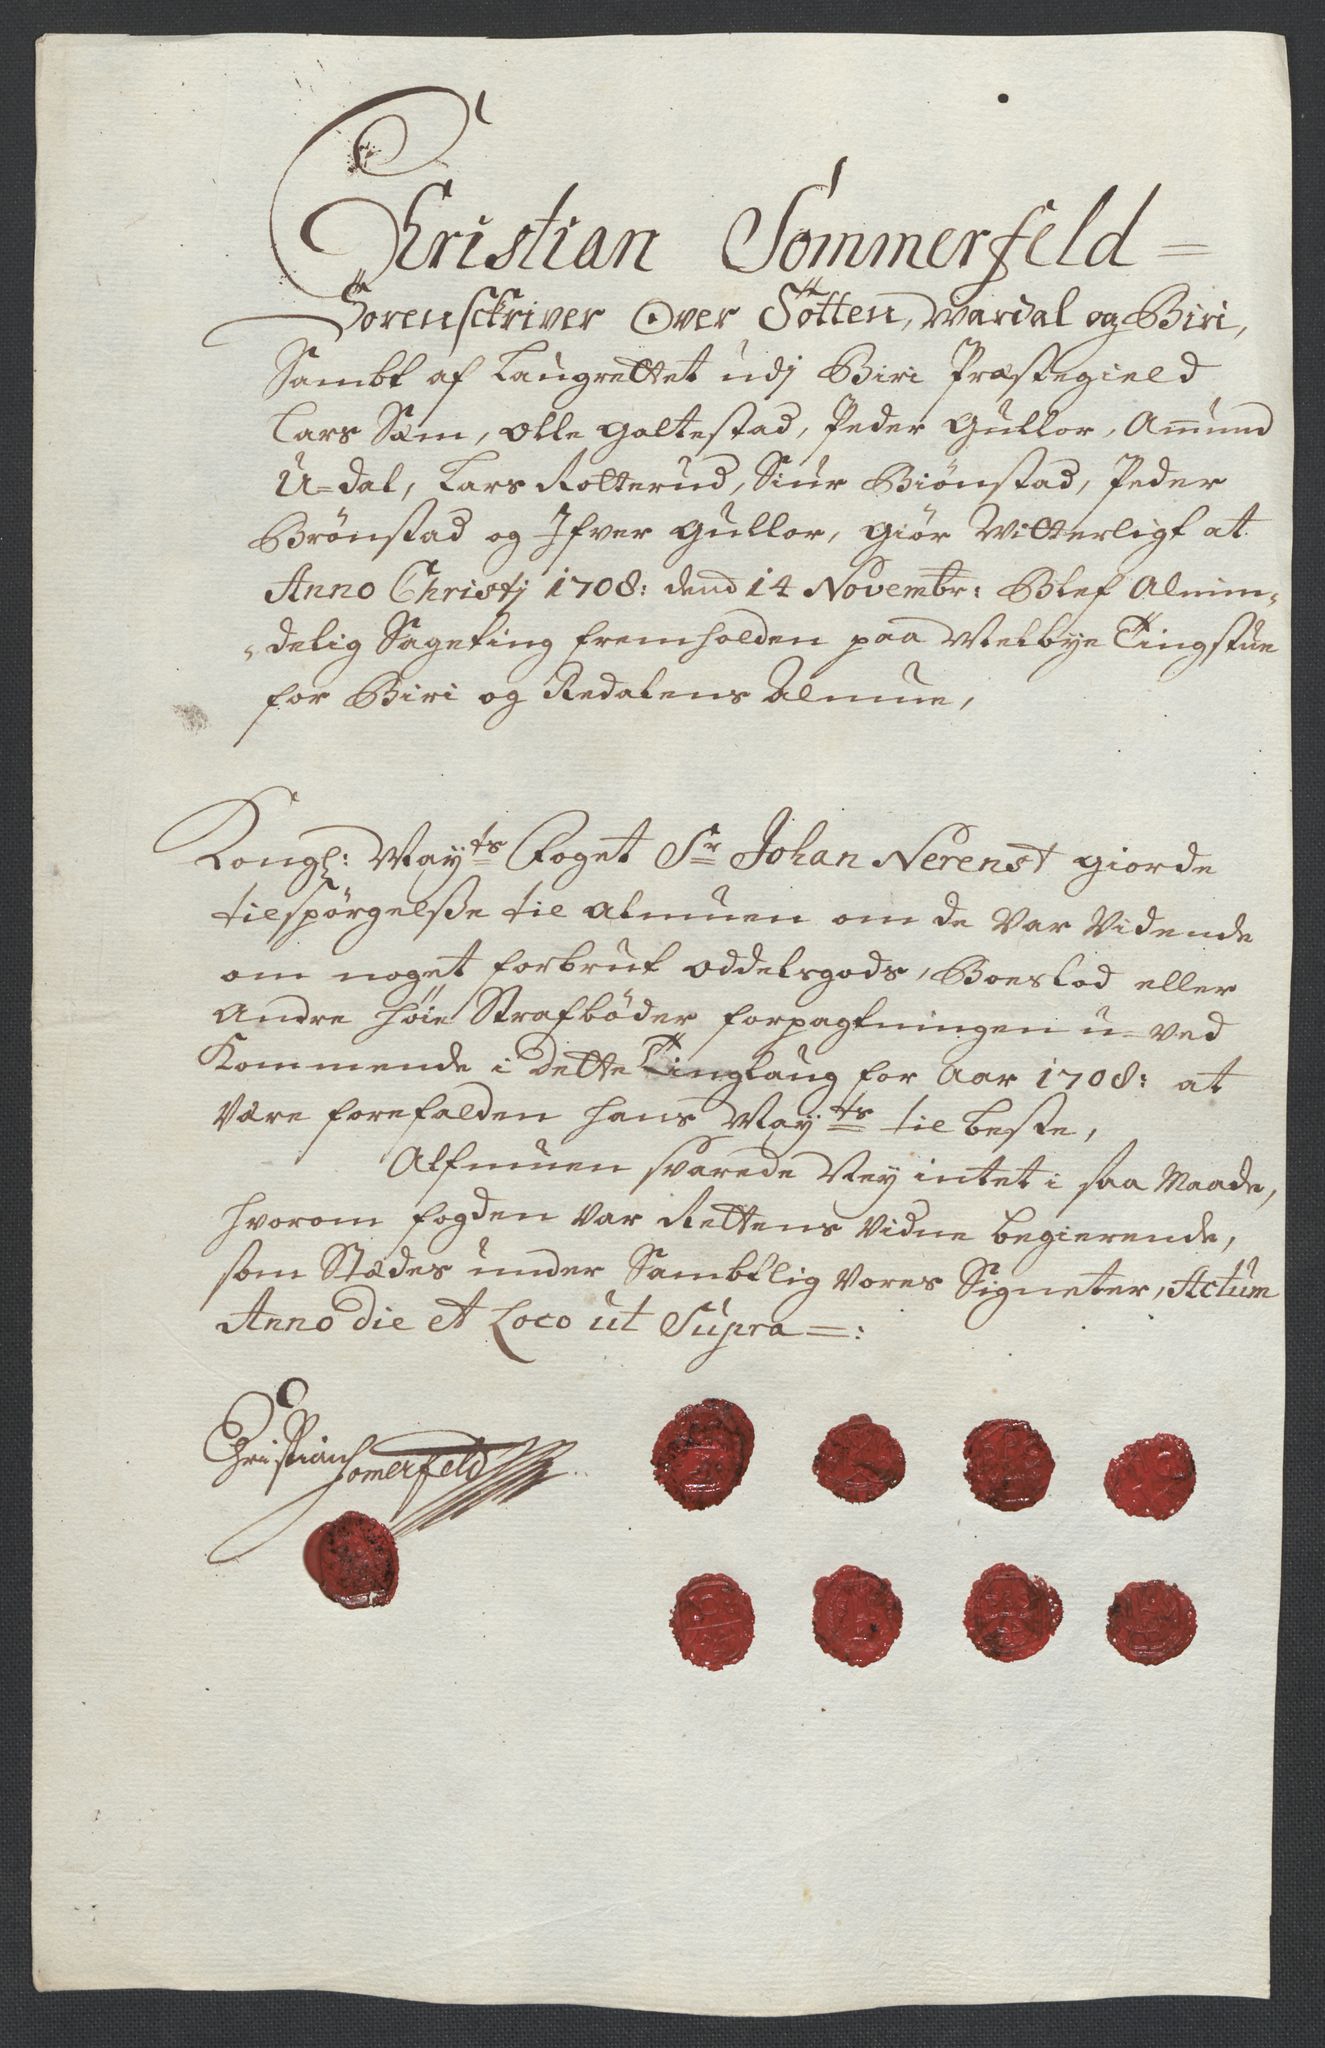 Christian Sommerfeld =
Sorenschriver Over Totten, Wardal og Biri,
Sambt af Laugrettet udj Biri Præstegield
Lars Sæm, Olle Galtestad, Peder Gullor, Amund
U=dal, Lars Rotterud, Siur Biønstad, Peder
Brønstad og Ifver Gullor, giør Witterligt at
Anno Christj 1708: dend 14 Novembr: Blef Almin-
delig Sageting fremholden paa Melbye Tingstue
for Biri og Redalens Almue,
Kongl: May.ts Foget Sr Johan Nerenst giorde
tilspørgelsse til almuen om de Var Vidende
om noget forbrut Oddelsgods, Boeslod eller
Andre høie Strafbøder forpagtningen u-ved
Kommende i dette Tinglaug for Aar 1708: at
Være forefalden hans May.ts til beste,
Allmuen svarede Ney intet i saa Maade,
hvorom fogden Var Rettens Vidne begierende,
som Stædes under Sambtlig Vores Signeter, Actum
Anno die et Loco ut Supra =:
Christian Somerfeld